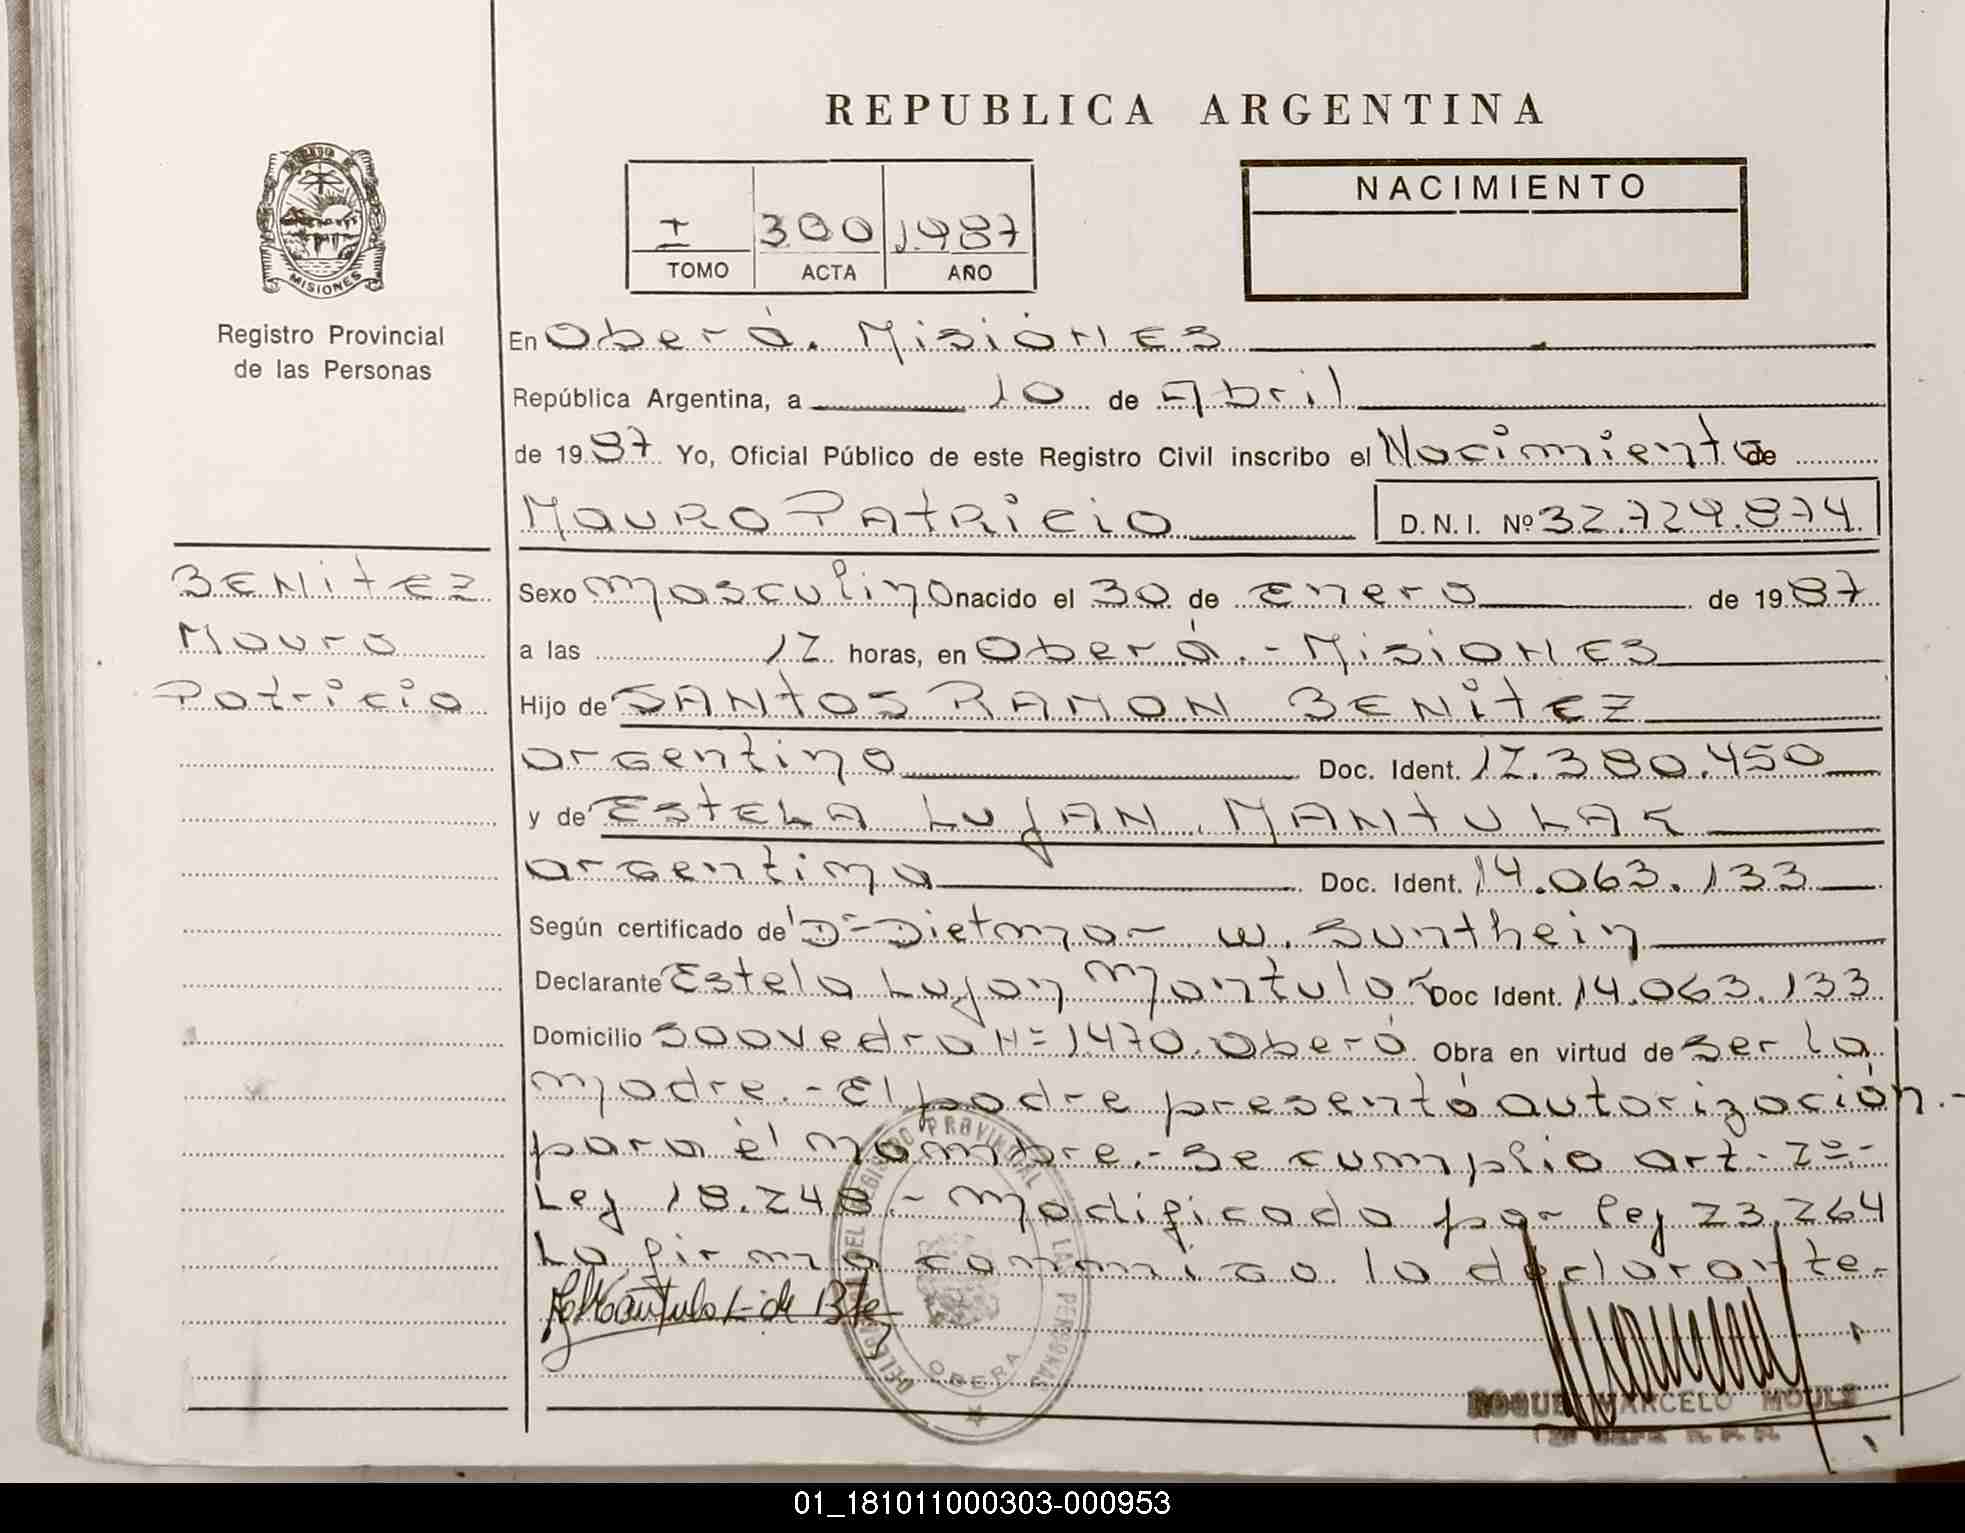 REPUBLICA ARGENTINA
MISIONES
Registro Provincial
de las Personas
I 300 1987
TOMO ACTA AÑO
NACIMIENTO
En Oberá. Misiónes
República Argentina, a 10 de Abril
de 1987 Yo, Oficial Público de este Registro Civil inscribo el Nacimiento de
MAURO PATRICIO D.N.I. Nº 32.724.874
BENITEZ
Mauro
Patricio
Sexo masculino nacido el 30 de Enero de 1987
a las 12 horas, en Oberá.- Misiones
Hijo de SANTOS RAMON BENITEZ
argentino Doc. Ident. 12.380.450
y de ESTELA LUJAN MANTULAK
argentina Doc. Ident. 14.063.133
Según certificado de Dr Dietmar W. Sunthein
Declarante Estela Lujan Mantulak Doc Ident. 14.063.133
Domicilio Saavedra Nº 1470. Oberá Obra en virtud de ser la
madre.- El padre presentó autorización.-
para el nombre.- Se cumplio art. 2º.-
Ley 18.248.- Modificada por ley 23.264
La firma conmigo la declarante.-
DELEGACION DEL REGISTRO PROVINCIAL DE LAS PERSONAS
OBERA
ROQUE MARCELO MOULE
01_181011000303-000953